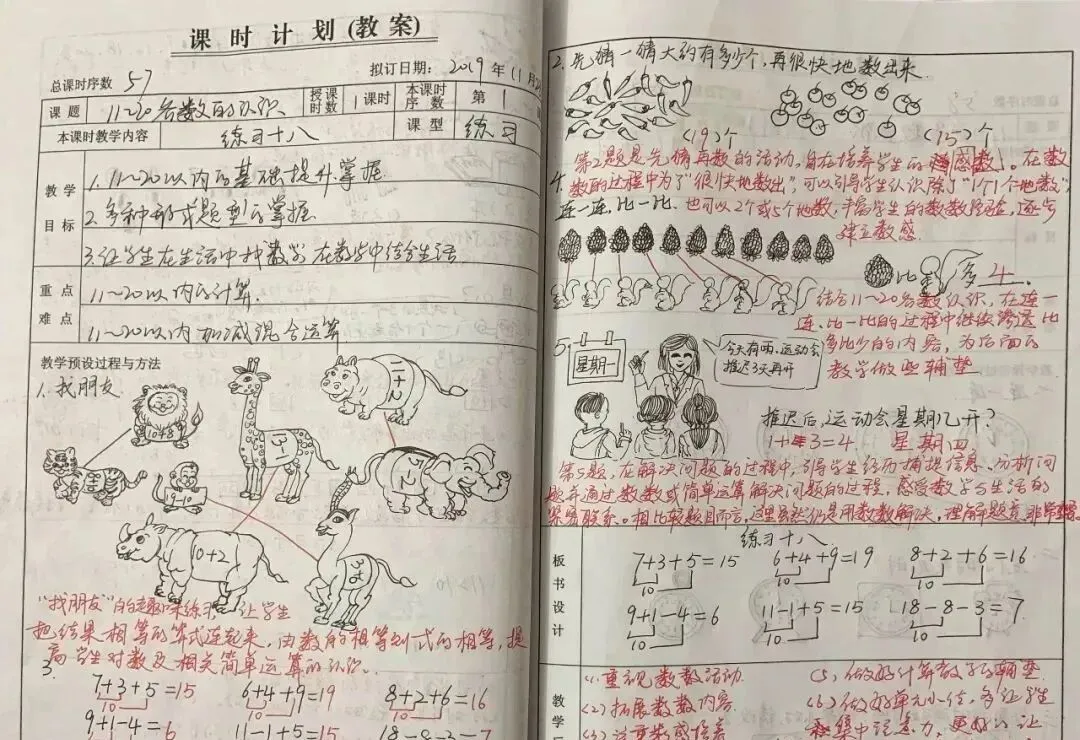 课时计划(教案)
总课时序数 57 拟订日期: 2019年11月2
课题 11~20各数的认识 授课时数 1课时 本课时序数 第1
本课时教学内容 练习十八 课型 练习
教学目标
1. 11~20以内的基础提升掌握.
2. 多种形式题型的掌握.
3. 让学生在生活中找数学 在教学中结合生活
重点 11~20以内的计算.
难点 11~20以内加减混合运算
教学预设过程与方法
1. 找朋友
10+8
13-1
11+2
15-2
10+2
"找朋友"的趣味练习 让学生
把结果相等的算式连起来,由数的相等到式的相等,提
高学生对数及相关简单运算的认识.
3.
7+3+5=15 6+4+9=19 8+2+6=16
10 10 10
9+1-4=6 18-8-3=7
2. 先猜一猜大约有多少个,再很快地数出来.
(19)个 (15)个
第2题是先猜再数的活动,旨在培养学生的数感。在数
数的过程中为了"很快地数出",可以引导学生认识除了"1个1个地数"
4. 连一连,比一比. 也可以2个或5个地数,丰富学生的数数经验,逐步
建立数感.
比 多 4
结合11~20各数认识,在连一
连、比一比的过程中继续渗透比
多比少的内容,为后面的
教学做些铺垫.
5. 星期一
今天有雨,运动会
推迟3天再开
推迟后,运动会星期几开?
1+3=4 星期四
第5题,在解决问题的过程中,引导学生经历捕捉信息、分析问
题并通过数数或简单运算解决问题的过程,感受数学与生活的
紧密联系。相比较题目而言,这里虽然仍是用数数解决,理解题意非常重要
板书设计
练习十八
7+3+5=15 6+4+9=19 8+2+6=16
10 10 10
9+1-4=6 11-1+5=15 18-8-3=7
10 10 10
教学
(1) 重视数数活动. (5) 做好计算教学的铺垫
(2) 拓展数数内容. (6) 做好单元小结,多让学生
(3) 注重数感培养 集中注意力,更好的让